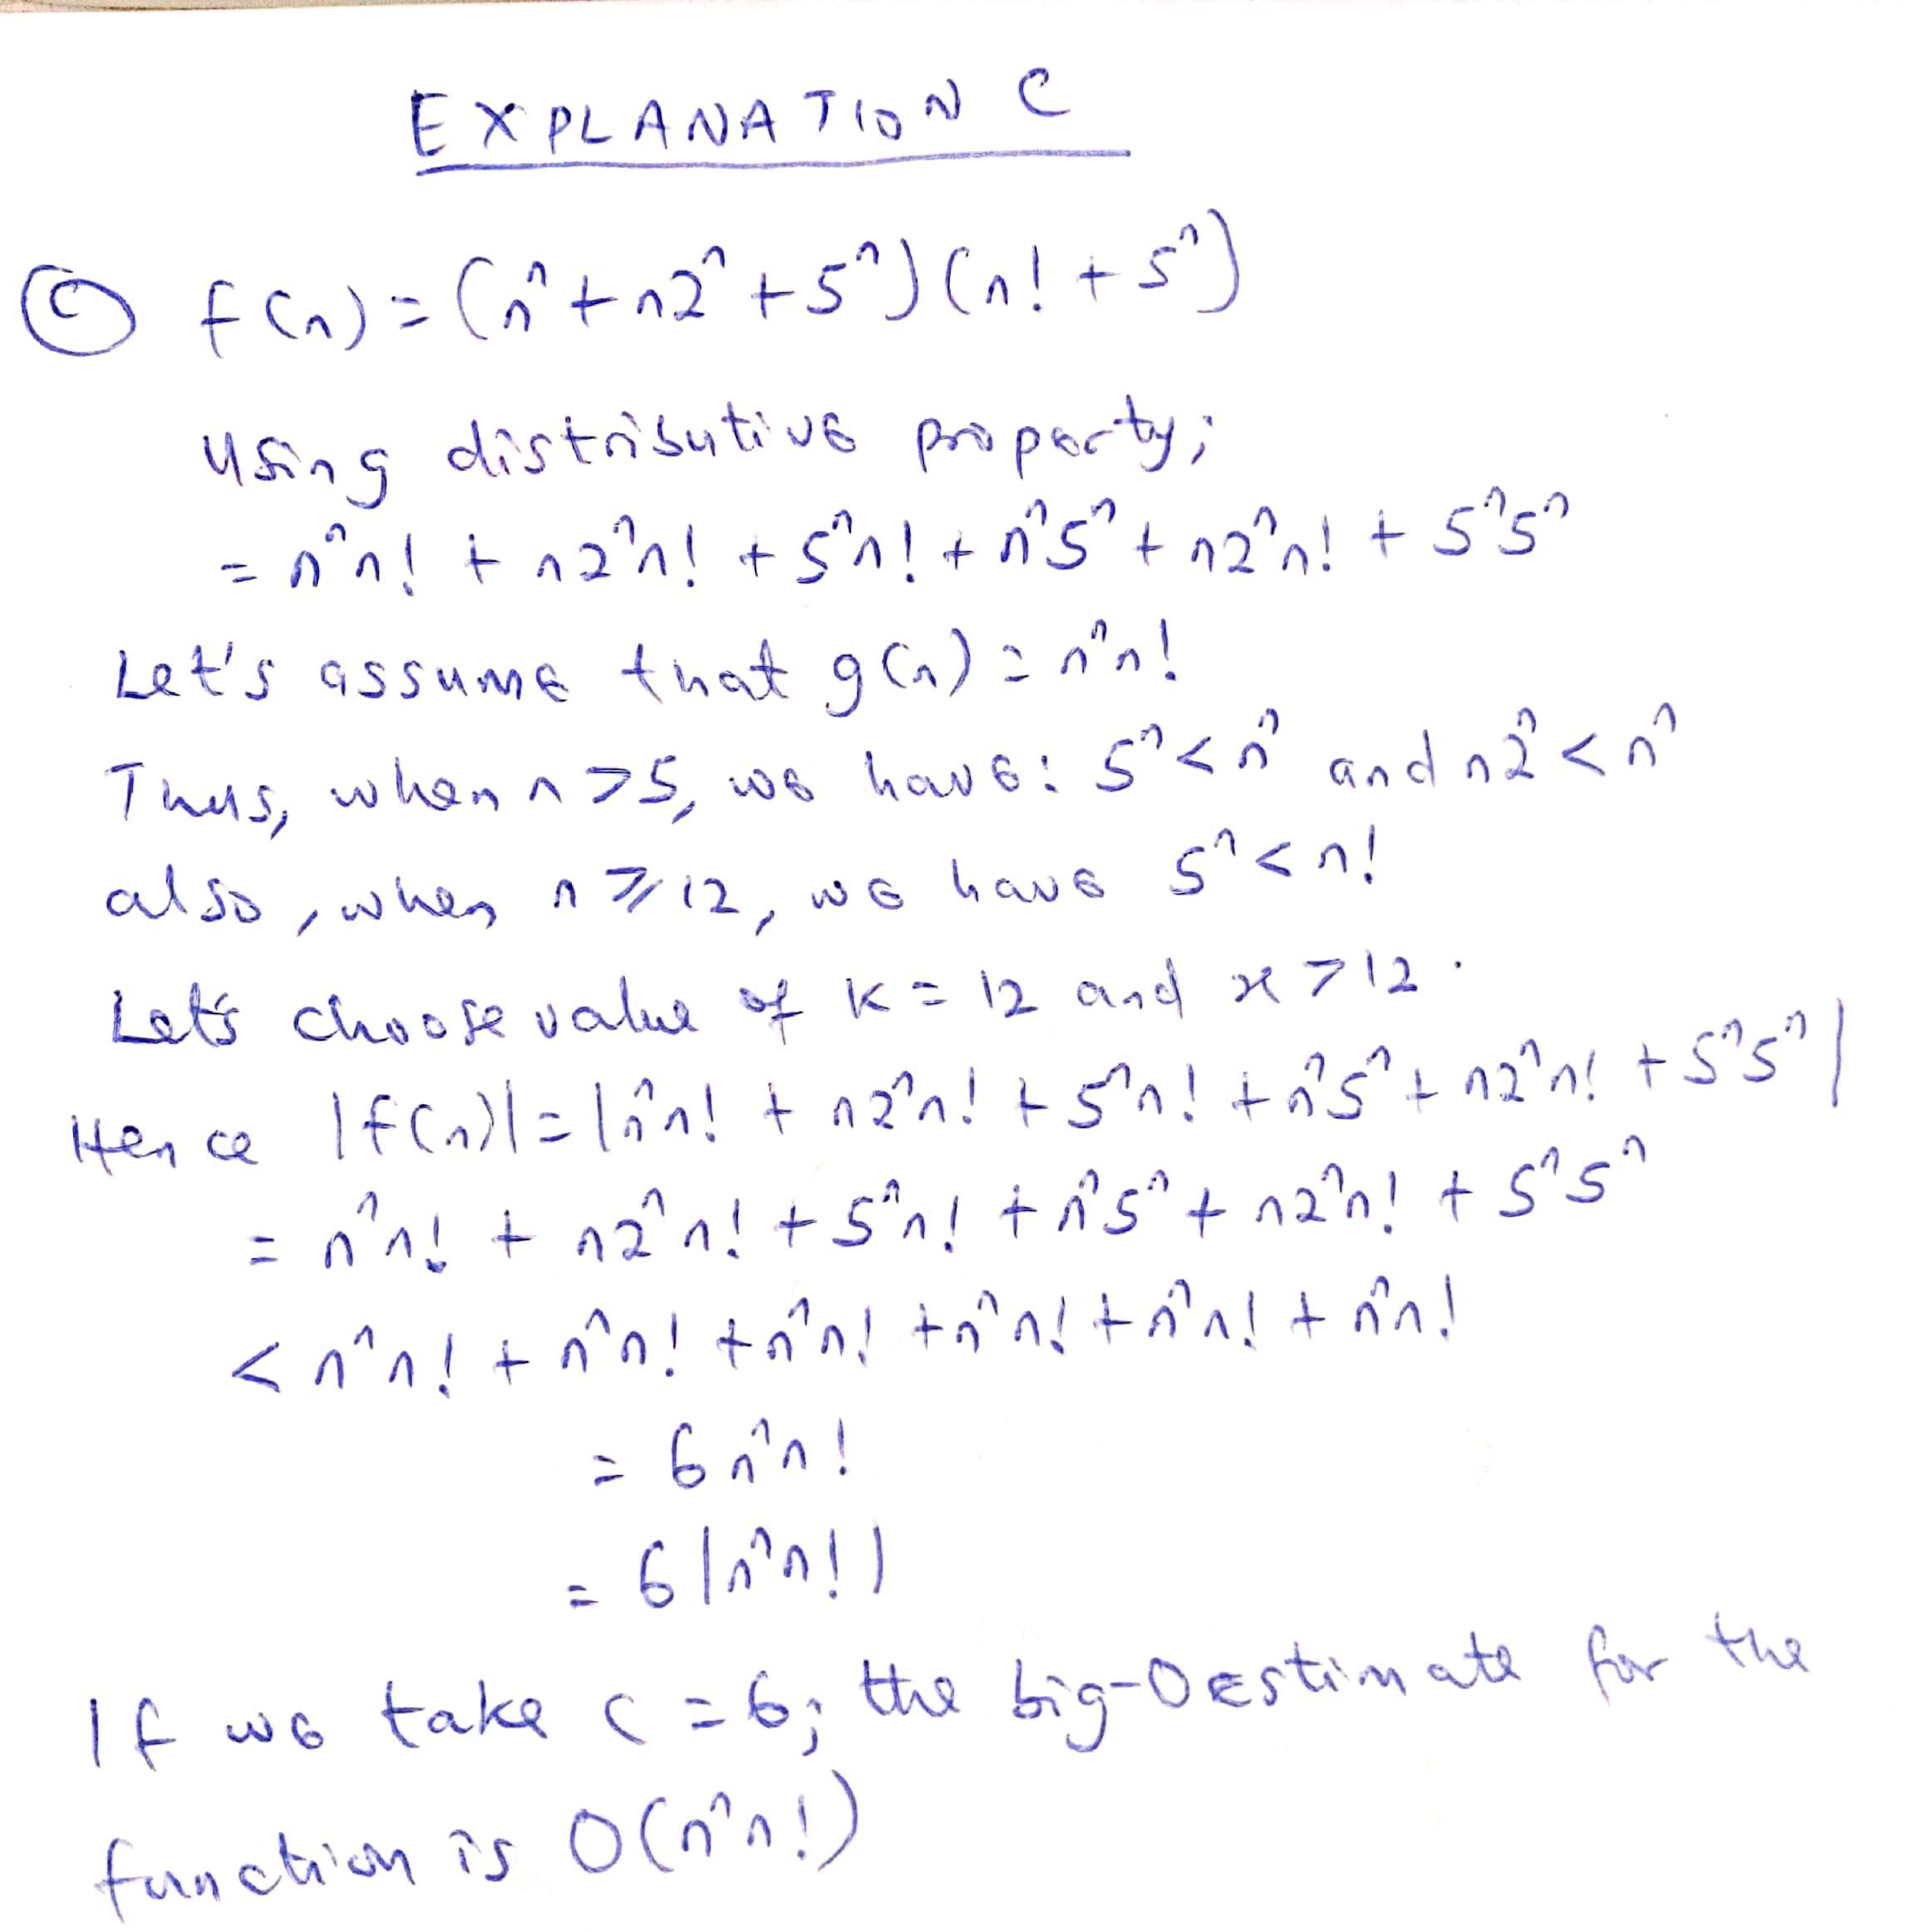 EXPLANATION C
ⓒ f(n) = (nⁿ + n2ⁿ + 5ⁿ)(n! + 5ⁿ)
Using distributive property;
= nⁿn! + n2ⁿn! + 5ⁿn! + nⁿ5ⁿ + n2ⁿn! + 5ⁿ5ⁿ
Let's assume that g(n) = nⁿn!
Thus, when n > 5, we have: 5ⁿ < nⁿ and n2ⁿ < nⁿ
also, when n ⩾ 12, we have 5ⁿ < n!
Let's choose value of k = 12 and x > 12.
Hence |f(n)| = |nⁿn! + n2ⁿn! + 5ⁿn! + nⁿ5ⁿ + n2ⁿn! + 5ⁿ5ⁿ|
= nⁿn! + n2ⁿn! + 5ⁿn! + nⁿ5ⁿ + n2ⁿn! + 5ⁿ5ⁿ
< nⁿn! + nⁿn! + nⁿn! + nⁿn! + nⁿn! + nⁿn!
= 6nⁿn!
= 6|nⁿn!|
If we take c = 6; the big-O estimate for the
function is O(nⁿn!)